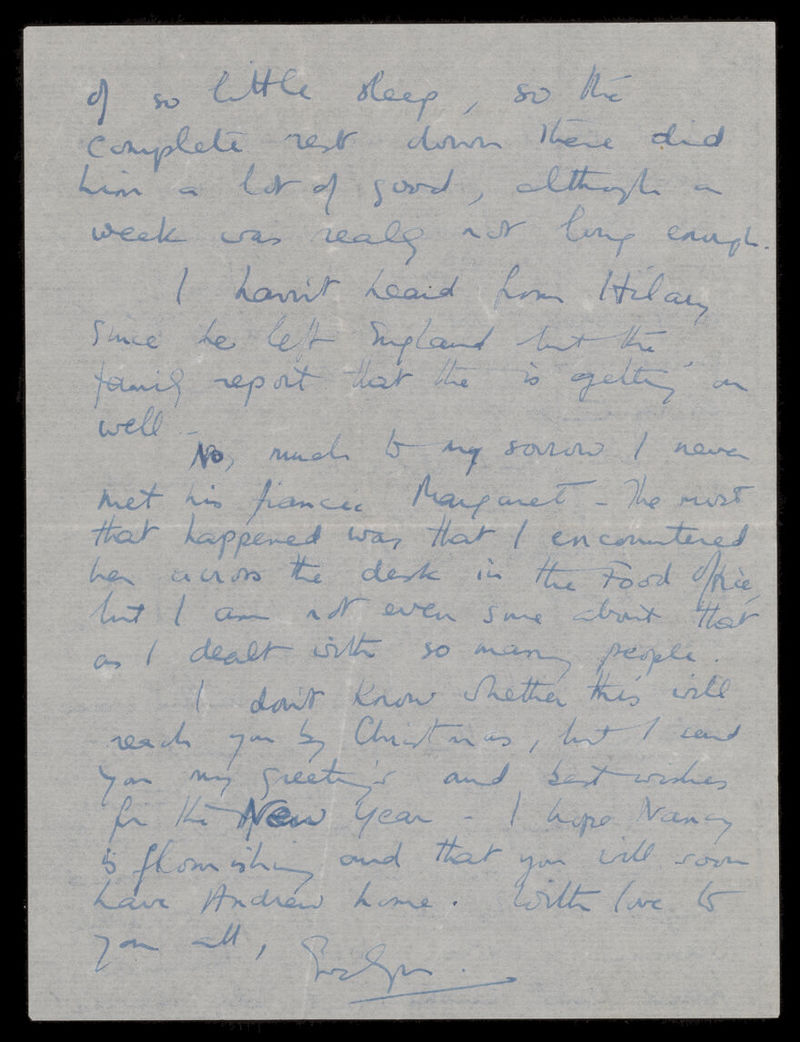 of so little sleep, so the
complete rest down there did
him a lot of good, although a
week was really not long enough.
I havn't heard from Hilary
since he left England but the
family report that he is getting on
well -
No, much to my sorrow I never
met his fiancée Margaret - The most
that happened was that I encountered
her across the desk in the Food Office,
but I am not even sure about that
as I dealt with so many people.
I don't know whether this will
reach you by Christmas, but I send
you my greetings and best wishes
for the New Year - I hope Nancy
is flourishing and that you will soon
have Andrew home. With love to
you all, Evelyn.